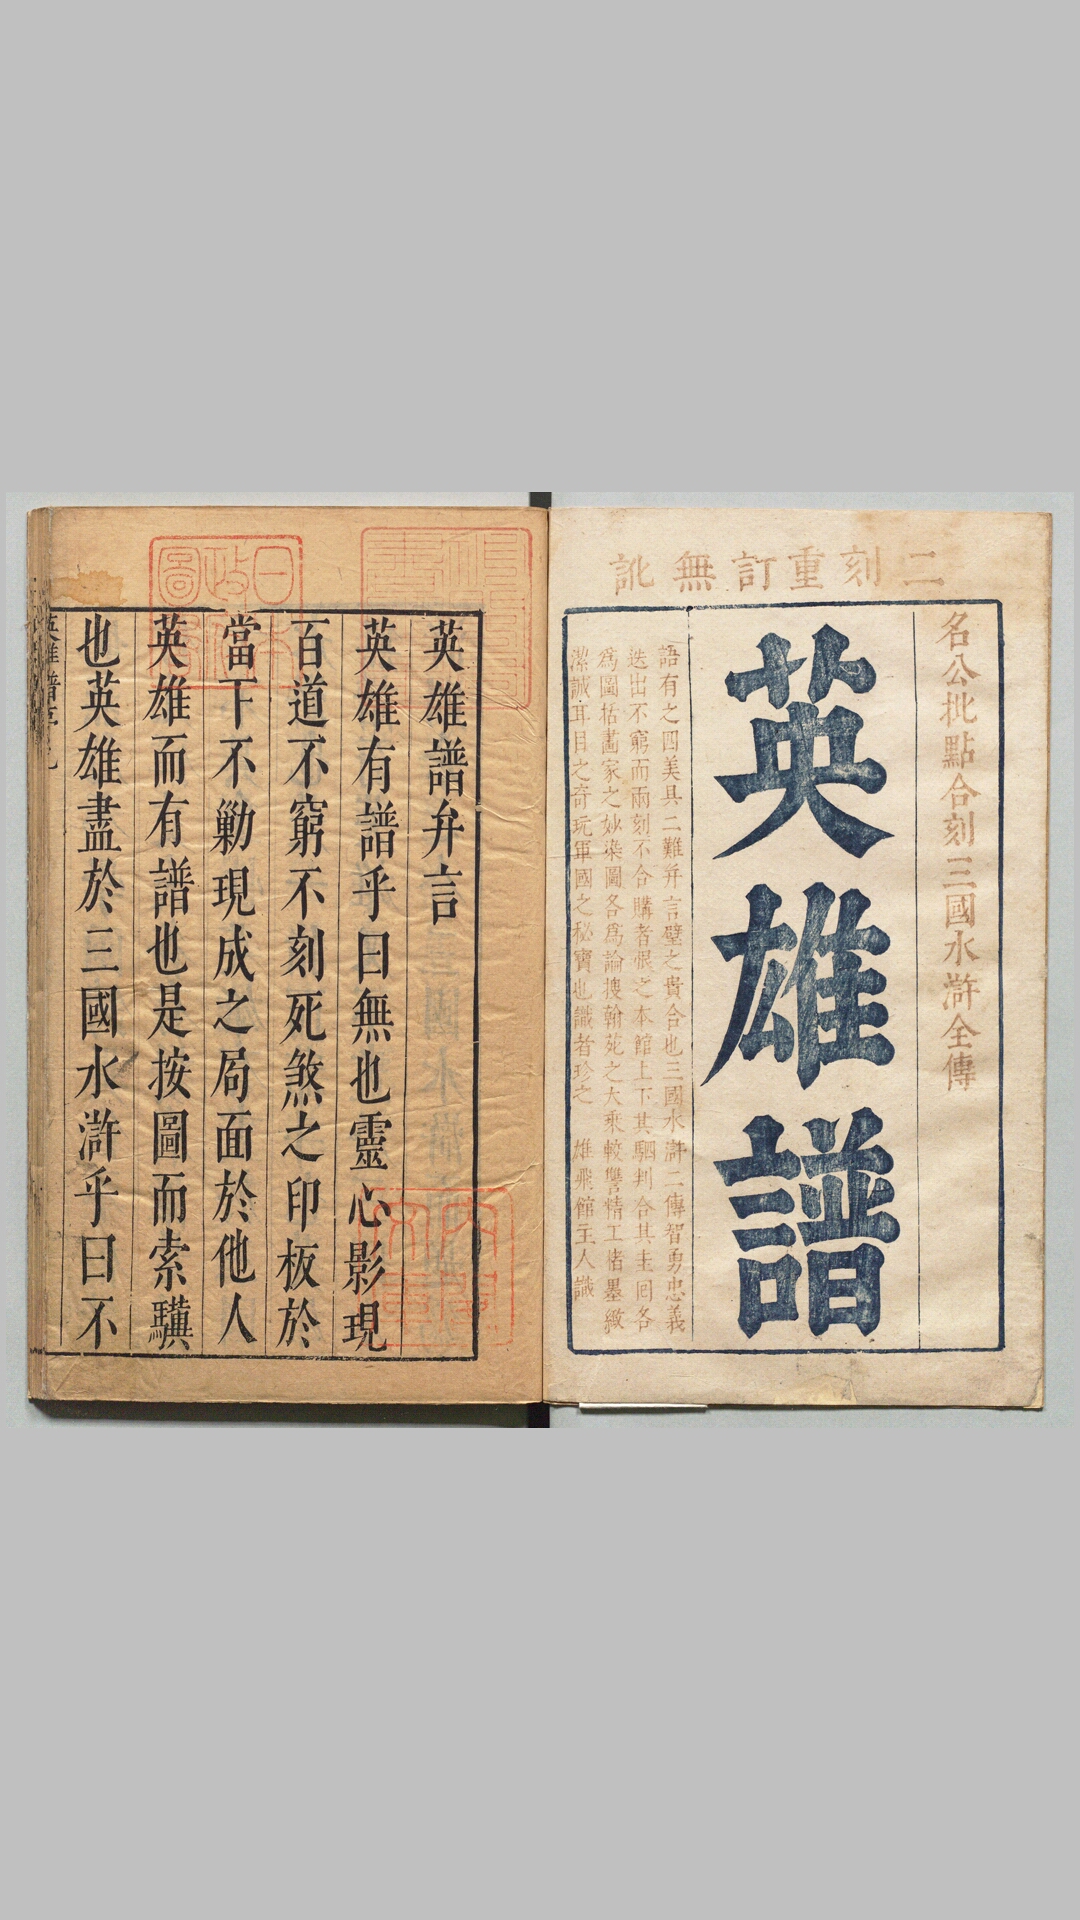 二刻重訂無訛
名公批點合刻三國水滸全傳
英雄譜
語有之四美具二難并言璧之貴合也三國水滸二傳智勇忠義
迭出不窮而兩刻不合購者恨之本館上下其駟判合其圭回各
為圖括畵家之妙染圖各為論搜翰苑之大乘較讐精工楮墨緻
潔誠耳目之奇玩軍國之秘寶也識者珍之 雄飛館主人識
英雄譜弁言
英雄有譜乎曰無也靈心影現
百道不窮不刻死煞之印板於
當下不勦現成之局面於他人
英雄而有譜也是按圖而索驥
也英雄盡於三國水滸乎曰不